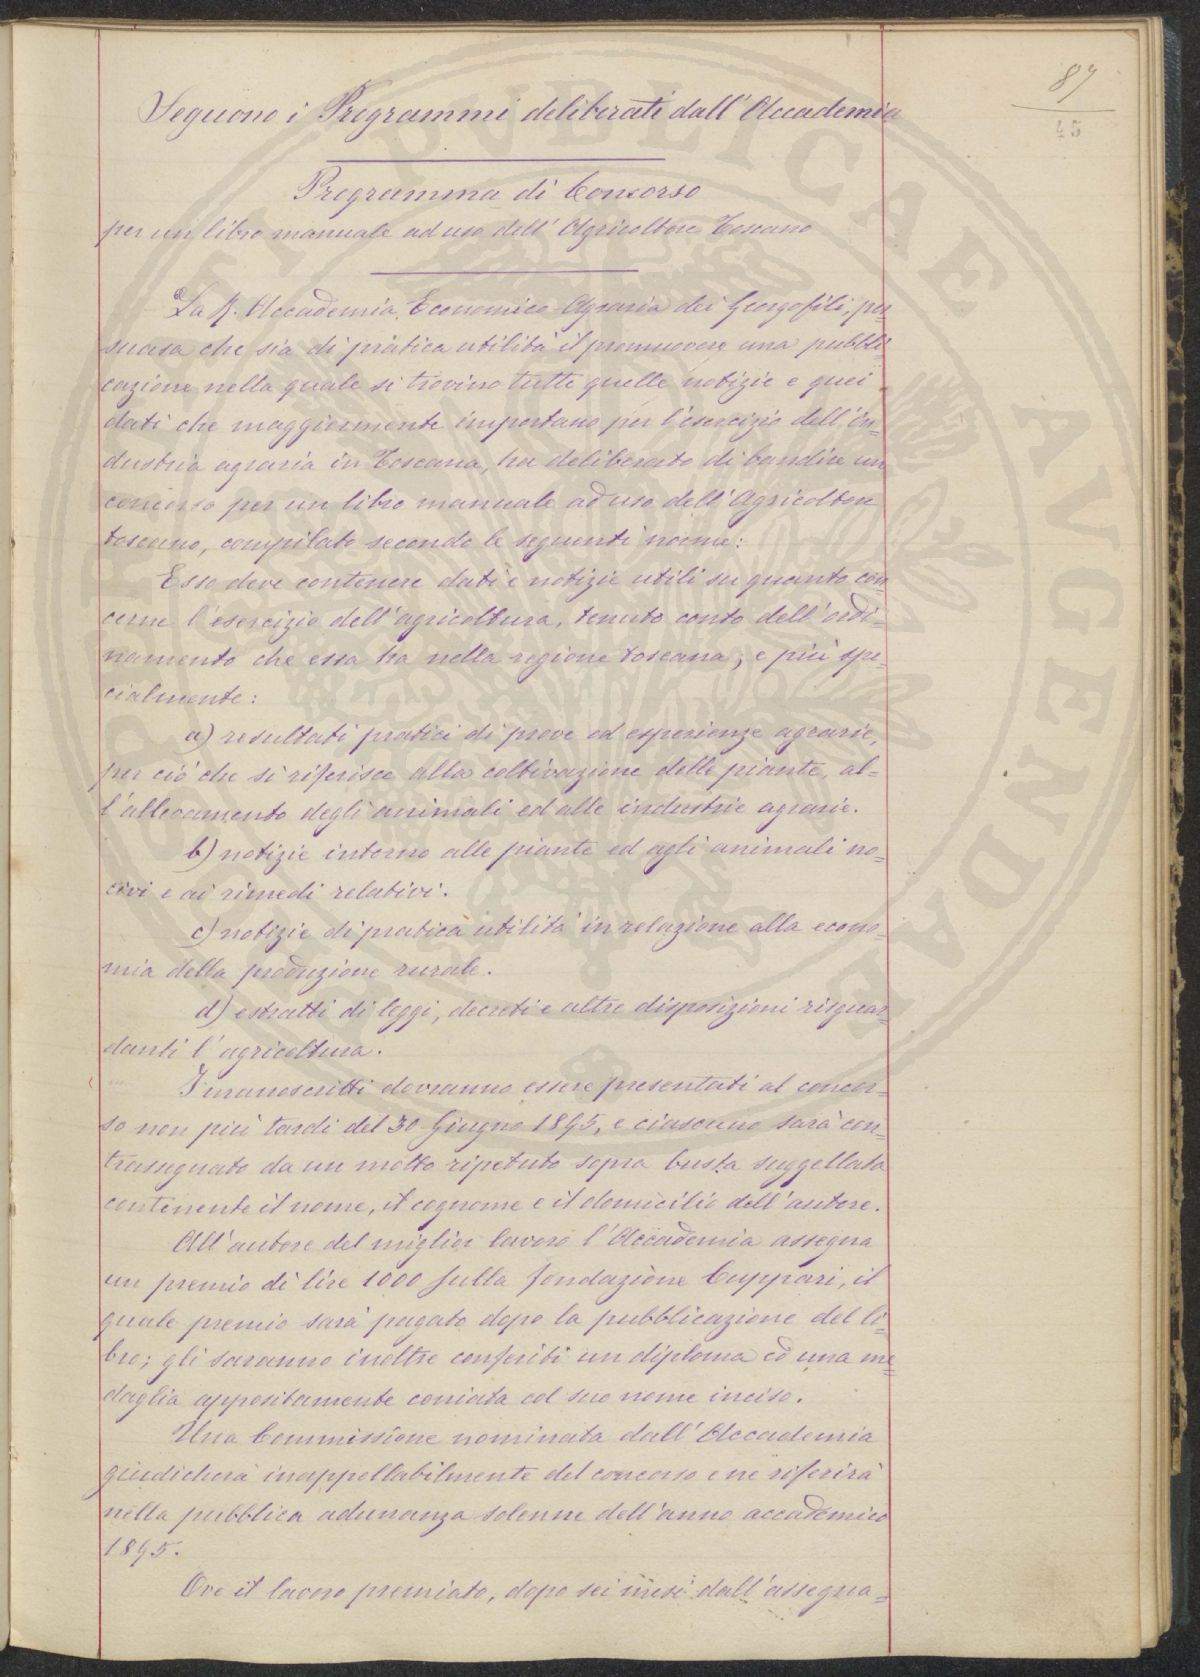 87
45
Seguono i Programmi deliberati dall'Accademia
Programma di Concorso
per un libro manuale ad uso dell'Agricoltore Toscano
La R. Accademia Economico-Agraria dei Georgofili, per=
suasa che sia di pratica utilità il promuovere una pubbli=
cazione nella quale si trovino tutte quelle notizie e quei
dati che maggiormente importano per l'esercizio dell'in=
dustria agraria in Toscana, ha deliberato di bandire un
concorso per un libro manuale ad uso dell'Agricoltore
toscano, compilato secondo le seguenti norme:
Esso deve contenere dati e notizie utili su quanto con=
cerne l'esercizio dell'agricoltura, tenuto conto dell'ordi=
namento che essa ha nella regione toscana; e più spe=
cialmente:
a) resultati pratici di prove ed esperienze agrarie,
per ciò che si riferisce alla coltivazione delle piante, al=
l'allevamento degli animali ed alle industrie agrarie.
b) notizie intorno alle piante ed agli animali no=
civi e ai rimedi relativi.
c) notizie di pratica utilità in relazione alla econo=
mia della produzione rurale.
d) estratti di leggi, decreti e altre disposizioni risguar=
danti l'agricoltura.
I manoscritti dovranno essere presentati al concor=
so non più tardi del 30 Giugno 1895, e ciascuno sarà con=
trassegnato da un motto ripetuto sopra busta suggellata
contenente il nome, il cognome e il domicilio dell'autore.
All'autore del miglior lavoro l'Accademia assegna
un premio di lire 1000 sulla fondazione Cuppari, il
quale premio sarà pagato dopo la pubblicazione del li=
bro; gli saranno inoltre conferiti un diploma ed una me=
daglia appositamente coniata col suo nome inciso.
Una Commissione nominata dall'Accademia
giudicherà inappellabilmente del concorso e ne riferirà
nella pubblica adunanza solenne dell'anno accademico
1895.
Ove il lavoro premiato, dopo sei mesi dall'assegna=
PUBLICAE AVGENDAE